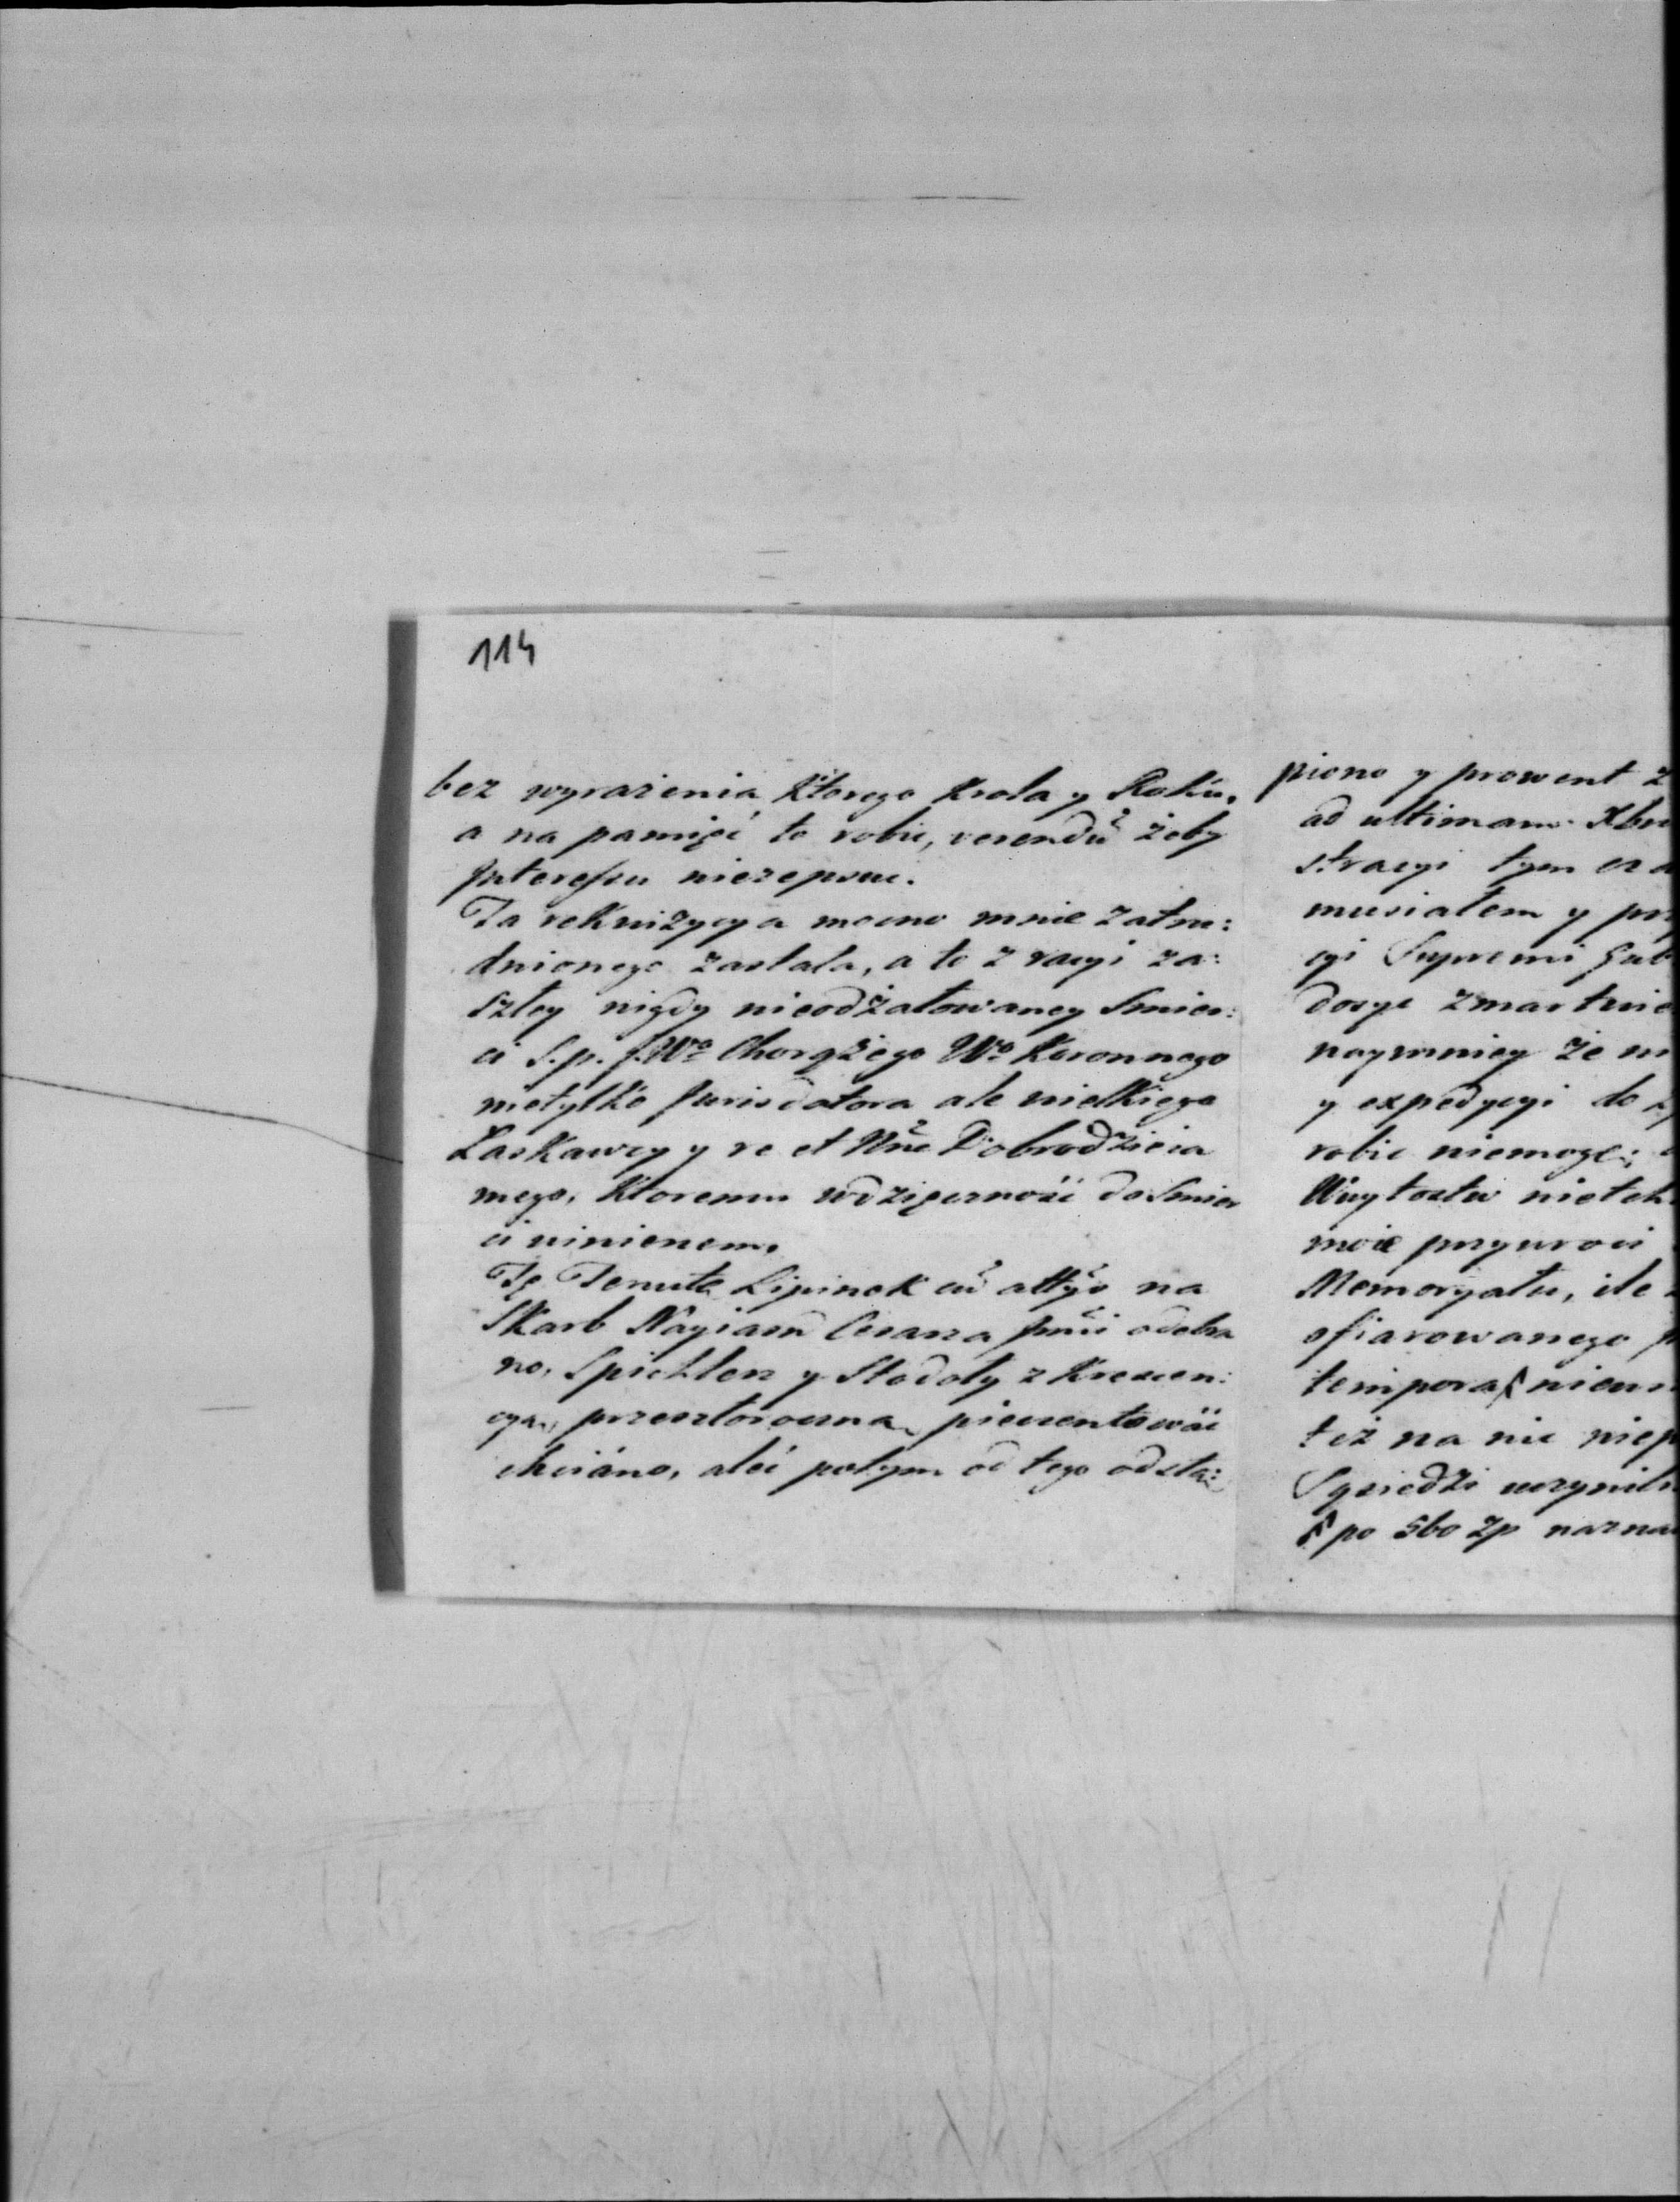 114
bez wyrażenia ktorego Krola y Roku,
a na pamięć to robić, verendũ żeby
Interessu niezepsuc.
Ta rekwizycya mocno mnie zatru:
dnionego zastala, a to z racyi za:
szłey nigdy nieodżałowaney Smier:
ci S.p. JWo Chorążego Wo Koronnego
nietylko Jurisdatora ale wielkiego
Łaskawcy y re et Nñe Dobrodzieia
mego, ktoremu wdzięczność do Smier
ci winienem.
Tę Tenutę Lipinek cũ atty̴s na
Skarb Nayiasñ Cesarza odebra
no, Spichlerz y Stodoły z Krescen:
cyą, przeszłoroczną pieczentować
chciáno, aleć potym od tego odstą:
piono y prowent z
ad ultimam Xbr
stracyi tym
musiałem y prz
cyi Supremi Gub
dosyc zmartwie
naymniey że m
y expedycyi do
robic niemogę;
Wuytostw nietch
moie przywroci
Memoryału, ile
ofiarowanego p
tempora niewi
też na nic niep
Sąsiedzi uczynili
po 5bo zp naznac